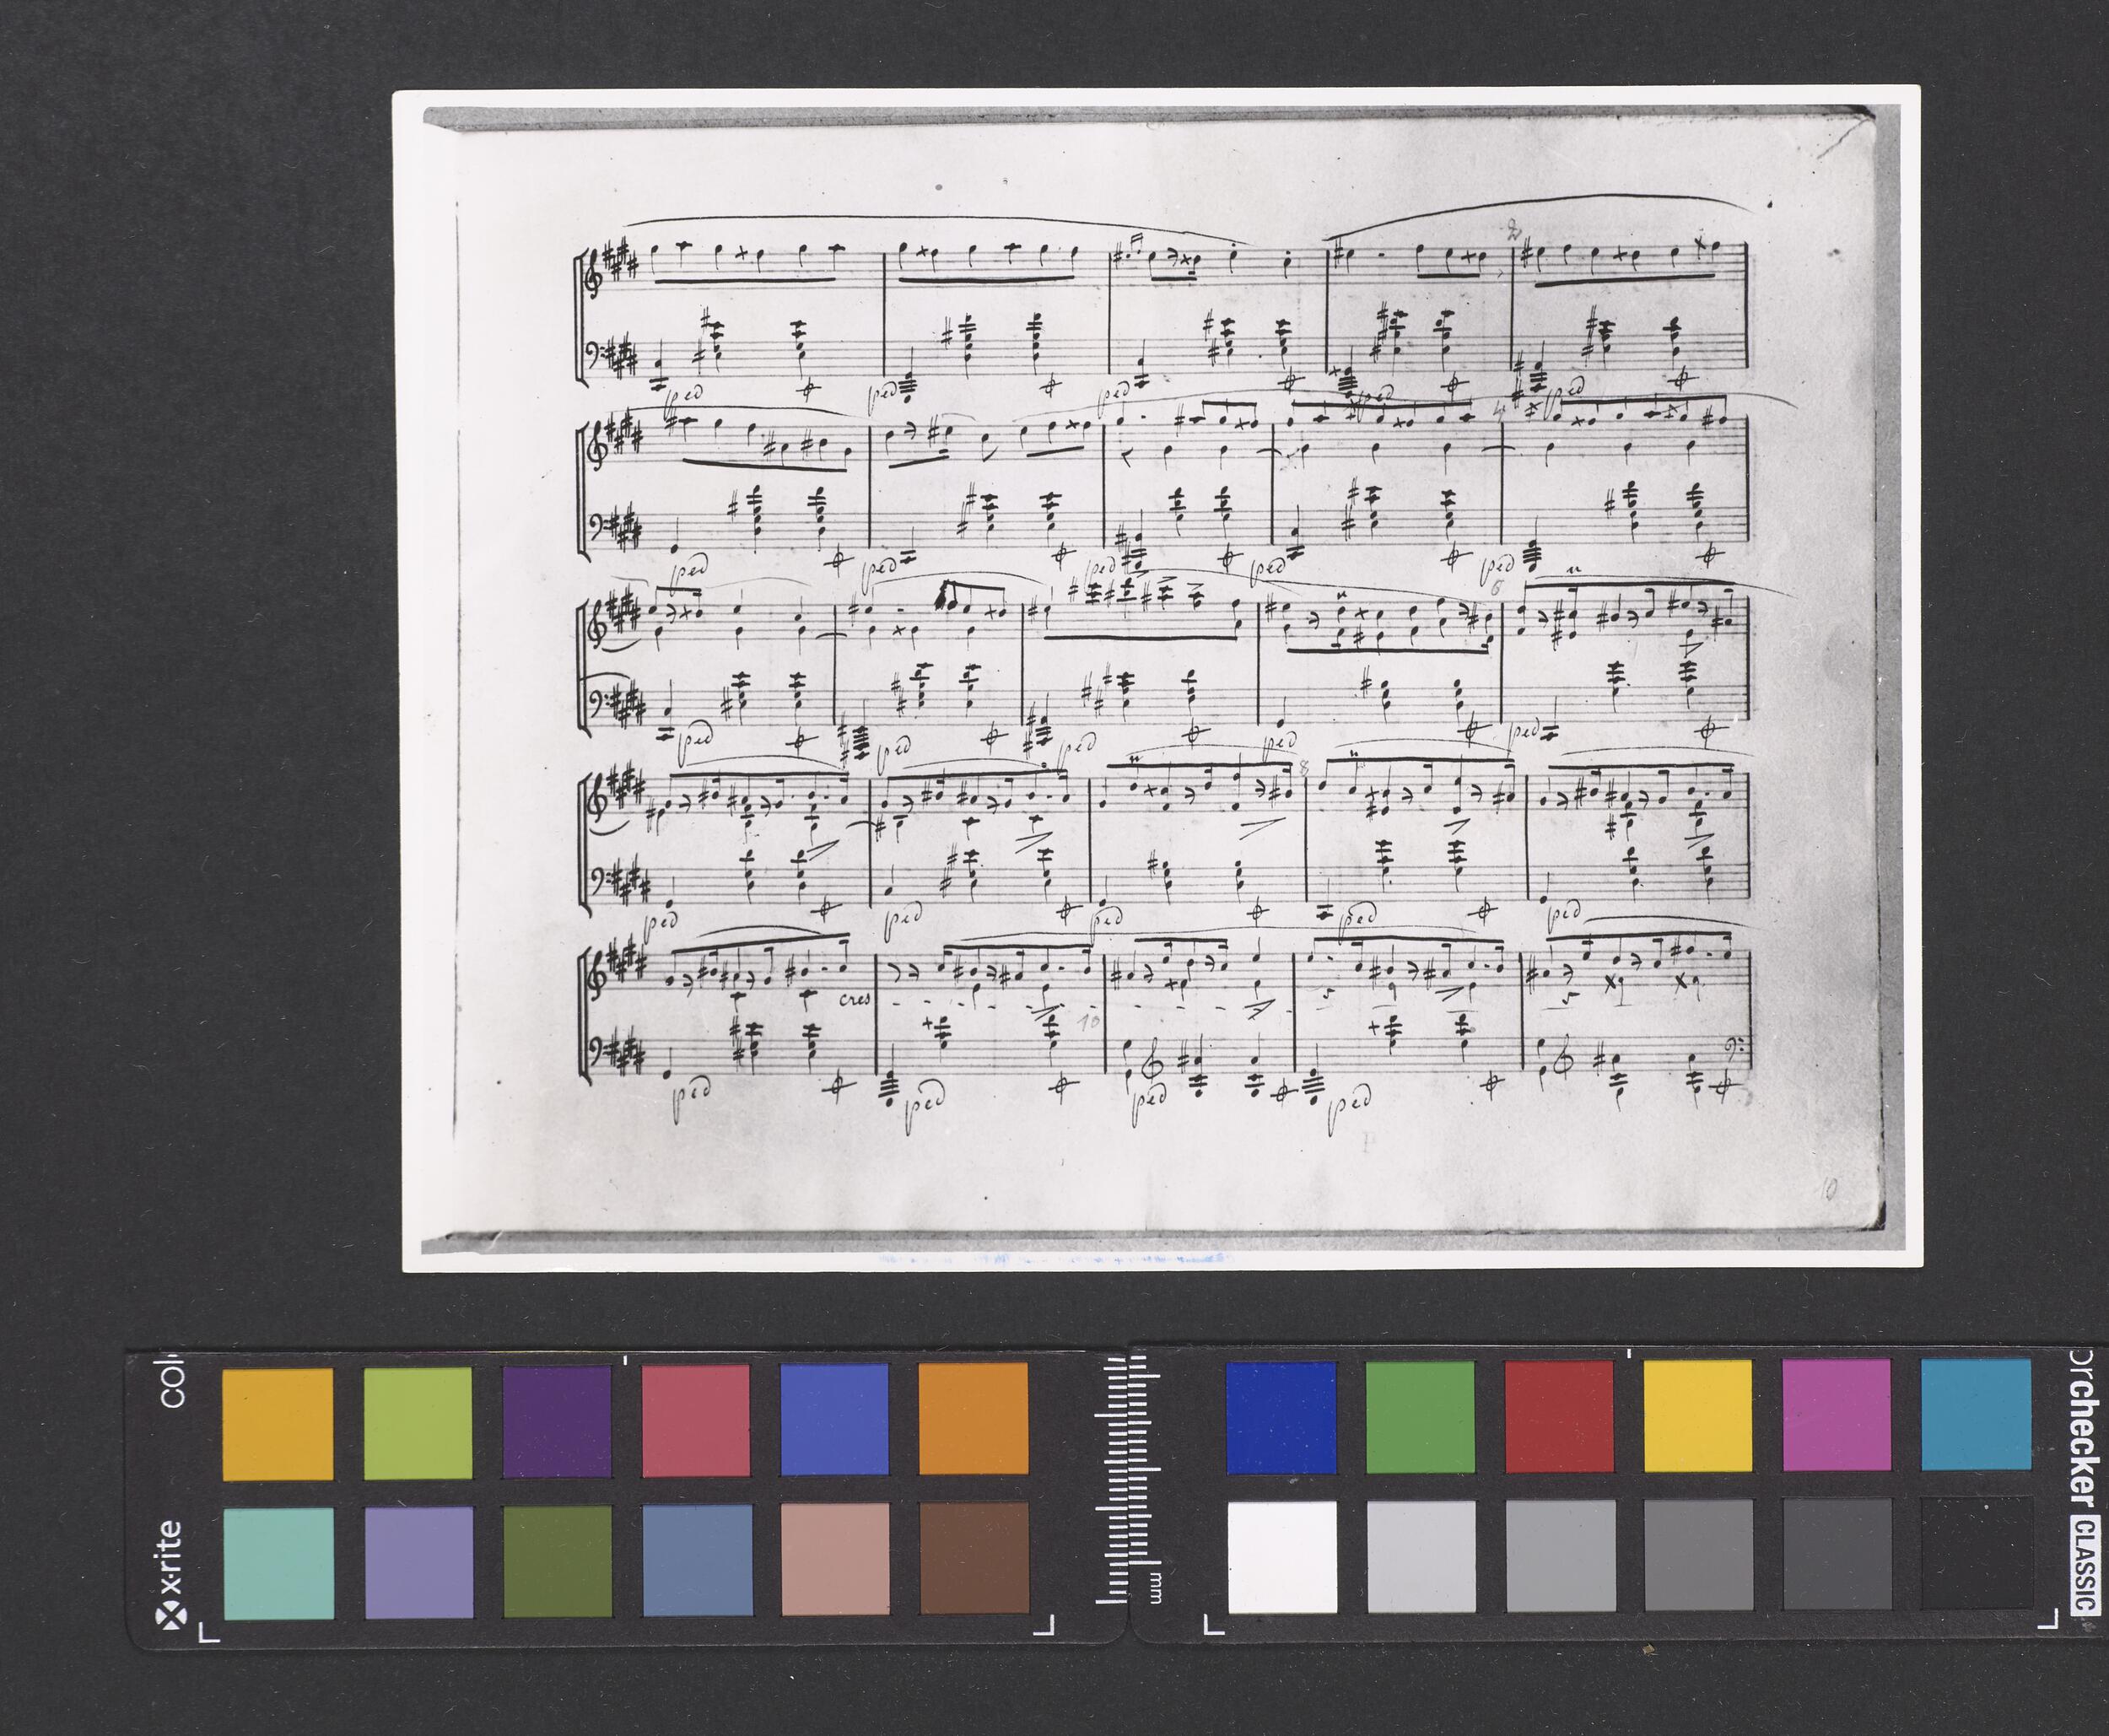 2
ped ped ped ped ped
4
ped ped ped ped ped
6
ped ped ped ped ped
8
ped ped ped ped ped
cres
10
ped ped ped ped
10
x·rite
mm
rchecker CLASSIC